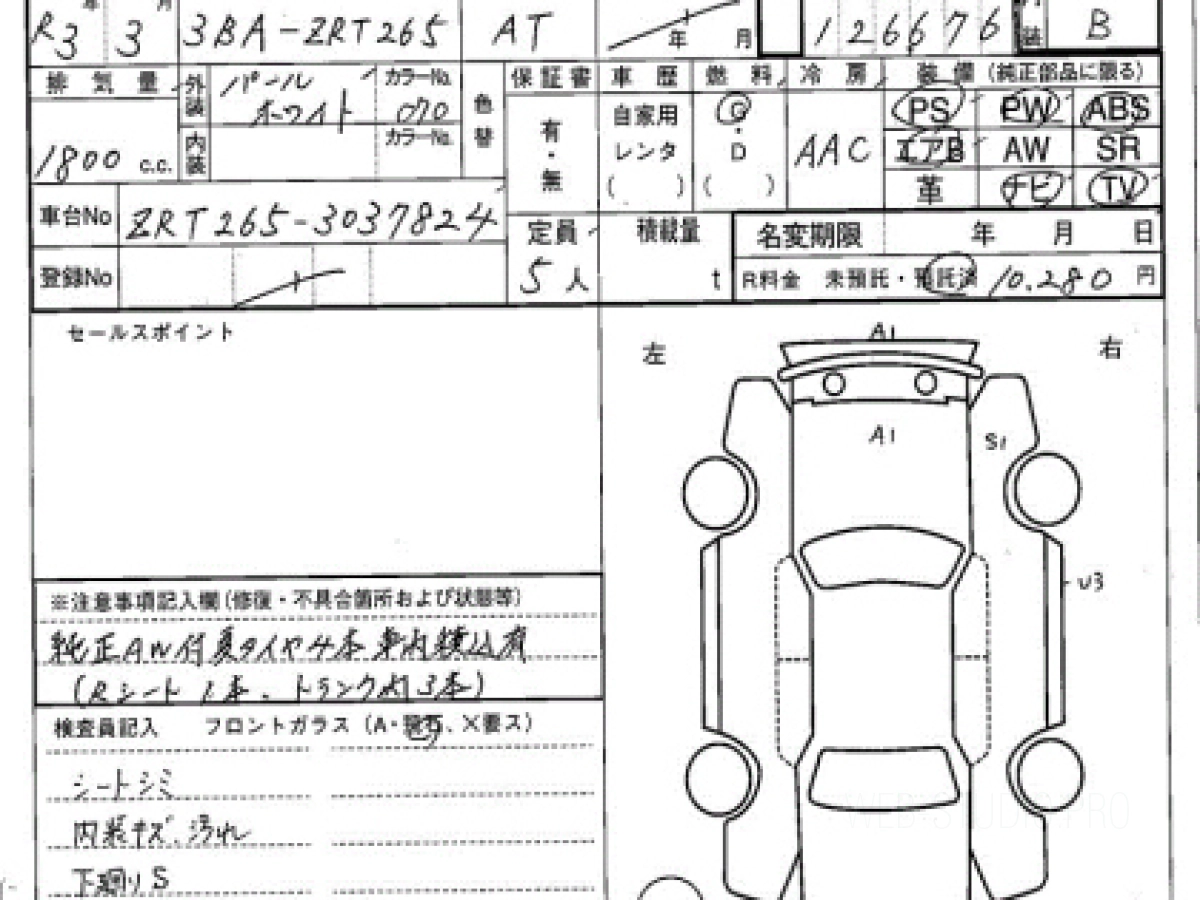 R3 年 3 月 3BA-ZRT265 AT 年 月 126676 内装 B
排気量 外装 パール ホワイト カラーNo. 070 色替 保証書 車歴 燃料 冷房 装備 (純正部品に限る)
1800 c.c. 内装 カラーNo. 有・無 自家用 レンタ ( ) G・D ( ) AAC PS PW ABS
エアB AW SR
革 ナビ TV
車台No ZRT265-3037824 定員 5人 積載量 t 名変期限 年 月 日
登録No R料金 未預託・預託済 10.280 円
セールスポイント
左 A1 右
A1 S1
U3
※注意事項記入欄(修復・不具合箇所および状態等)
純正AW付夏タイヤ4本車内積込有
(Rシート1本、トランク内3本)
検査員記入 フロントガラス (A・飛石、X要ス)
シートシミ
内装キズ、汚れ
下廻りS
WEB STUDIO PRO